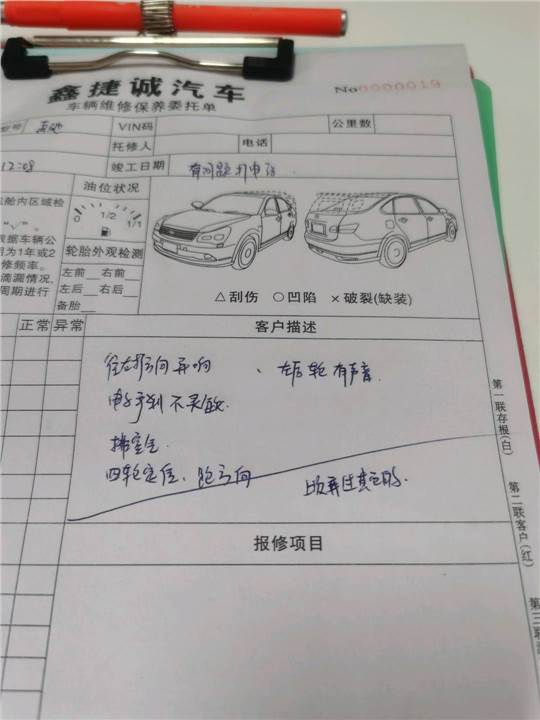 鑫捷诚汽车
No0000019
车辆维修保养委托单
型号
VIN码
公里数
托修人
电话
12:08
竣工日期
有问题打电话
舱内区域检
油位状况
0 1/2 1/1
根据车辆公
为1年或2
修频率。
滴漏情况,
周期进行
轮胎外观检测
左前 右前
左后 右后
备胎
△刮伤 ○凹陷 ×破裂(缺装)
正常 异常
客户描述
往左打方向异响 、左后轮有声音
电子手刹不灵敏
换空气
四轮定位、跑方向
报修项目
第一联存根(白)
第二联客户(红)
第三联